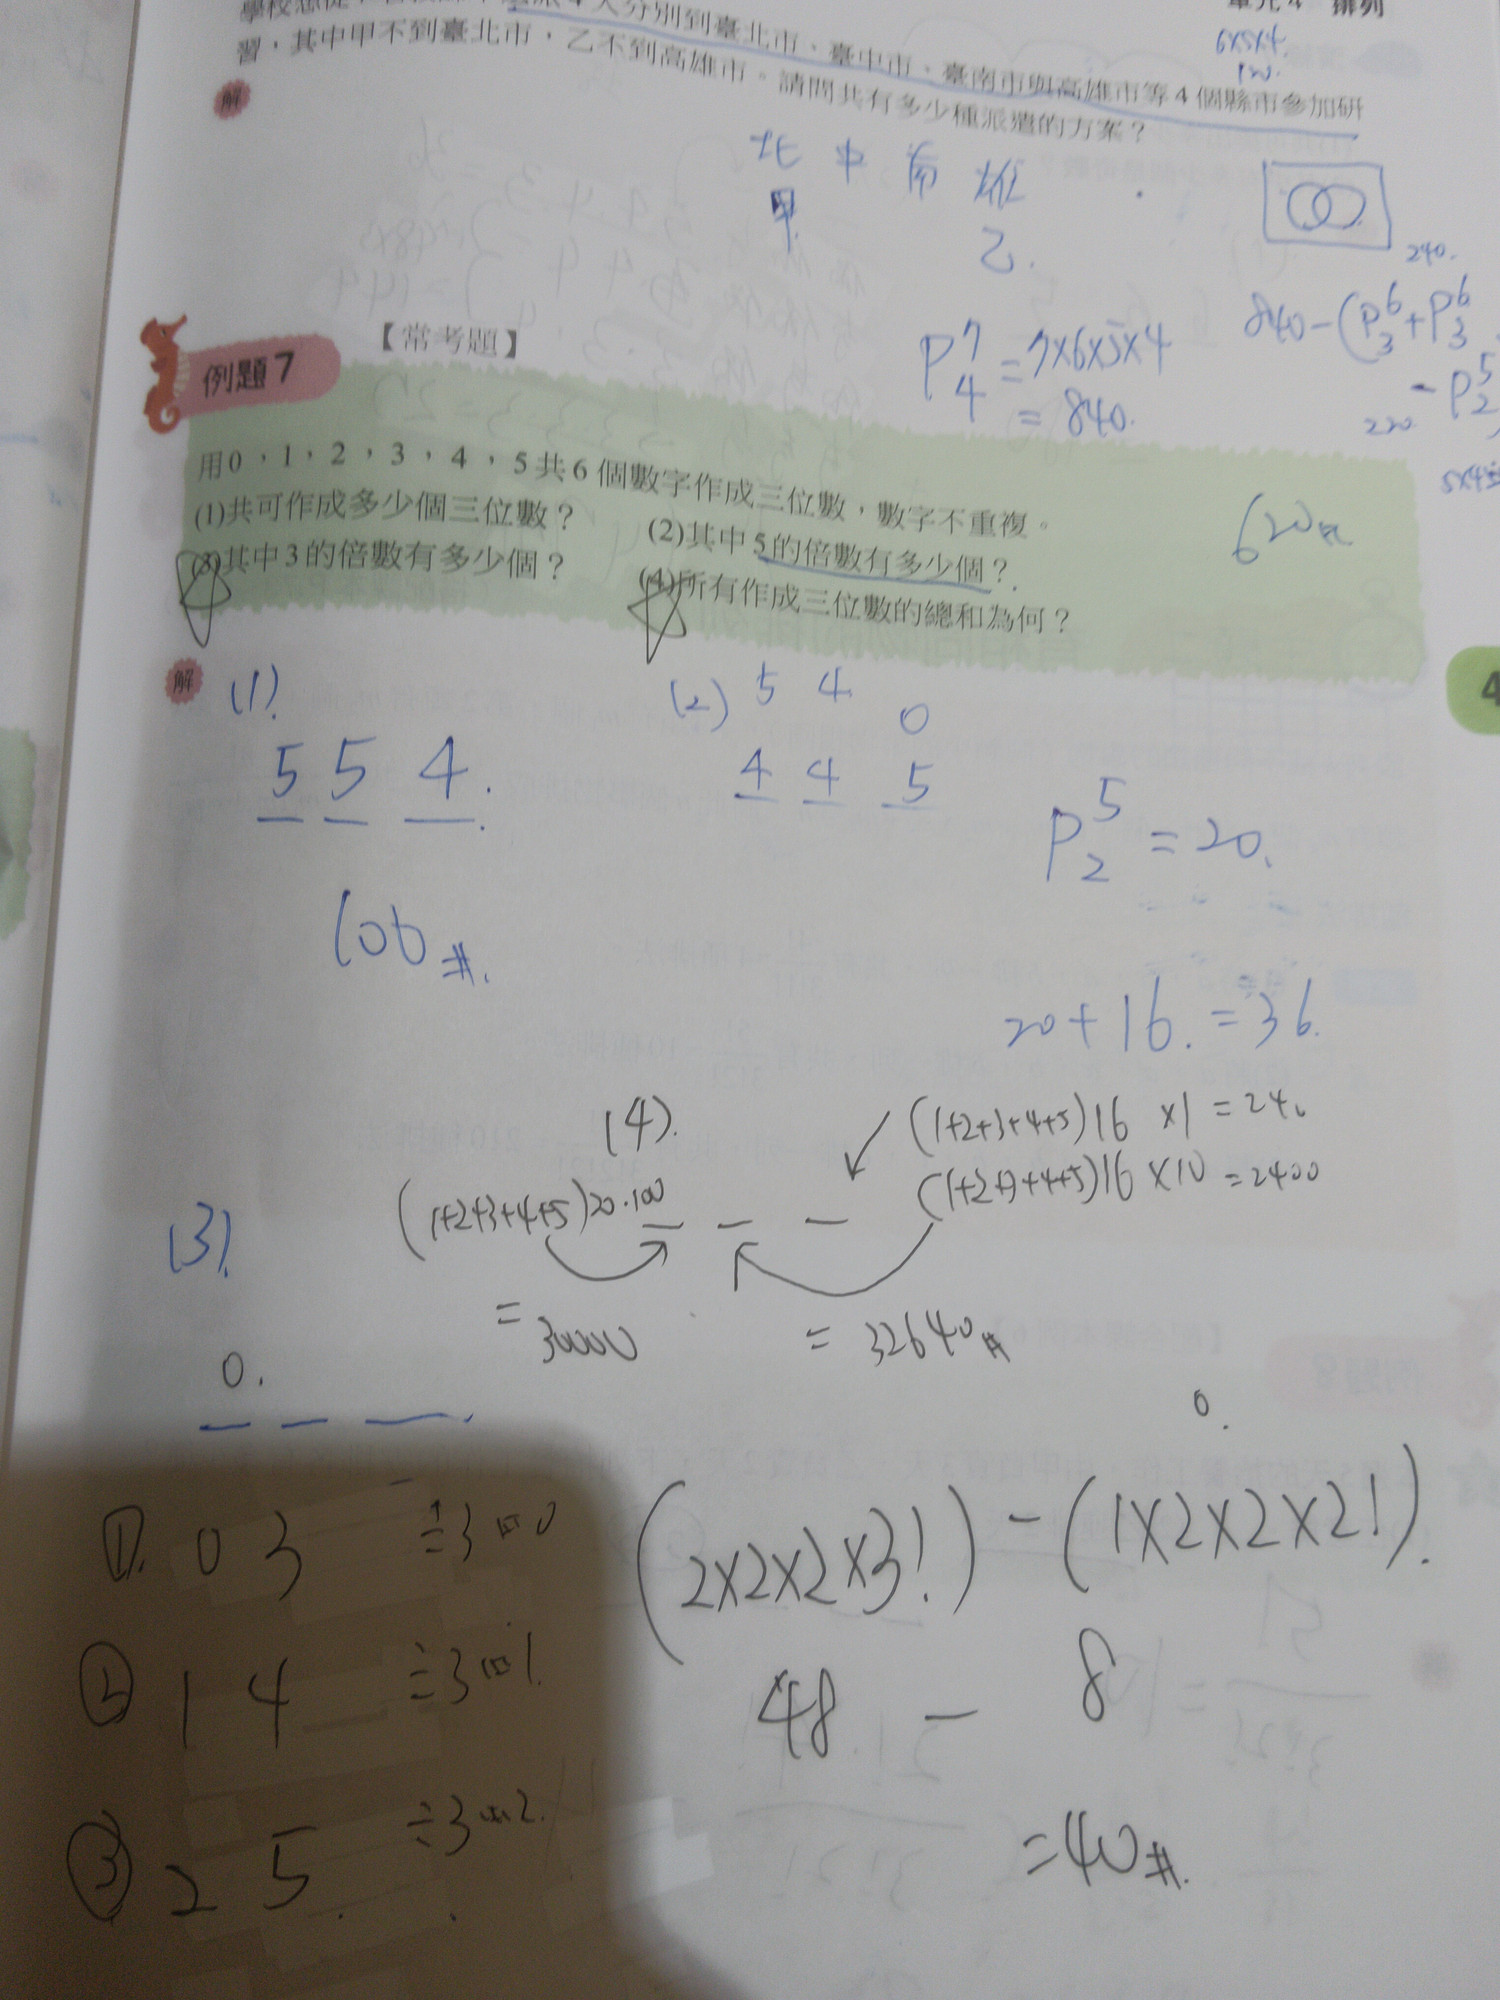 單元4 排列
4人分別到臺北市、臺中市、臺南市與高雄市等4個縣市參加研
習，其中甲不到臺北市，乙不到高雄市。請問共有多少種派遣的方案？
6×5×4
120.
解
北 中 南 雄
甲 乙.
240.
P⁷₄ = 7×6×5×4
= 840.
840-(P⁶₃+P⁶₃
-P⁵₂)
220
5×4
620#
【常考題】
例題7
用0，1，2，3，4，5共6個數字作成三位數，數字不重複。
(1)共可作成多少個三位數？ (2)其中5的倍數有多少個？
(3)其中3的倍數有多少個？ (4)所有作成三位數的總和為何？
4
解
(1).
5 5 4.
100#.
(2) 5 4 0
4 4 5
P⁵₂ = 20.
20+16.=36.
(4).
(1+2+3+4+5)16 ×1 = 240
(1+2+3+4+5)16 ×10 = 2400
(1+2+3+4+5)20·100
= 30000
= 32640#
(3).
0.
①. 0 3 ÷3餘0
② 1 4 ÷3餘1.
③ 2 5. ÷3餘2.
0.
(2×2×2×3!) - (1×2×2×2!).
48 - 8
=40#.